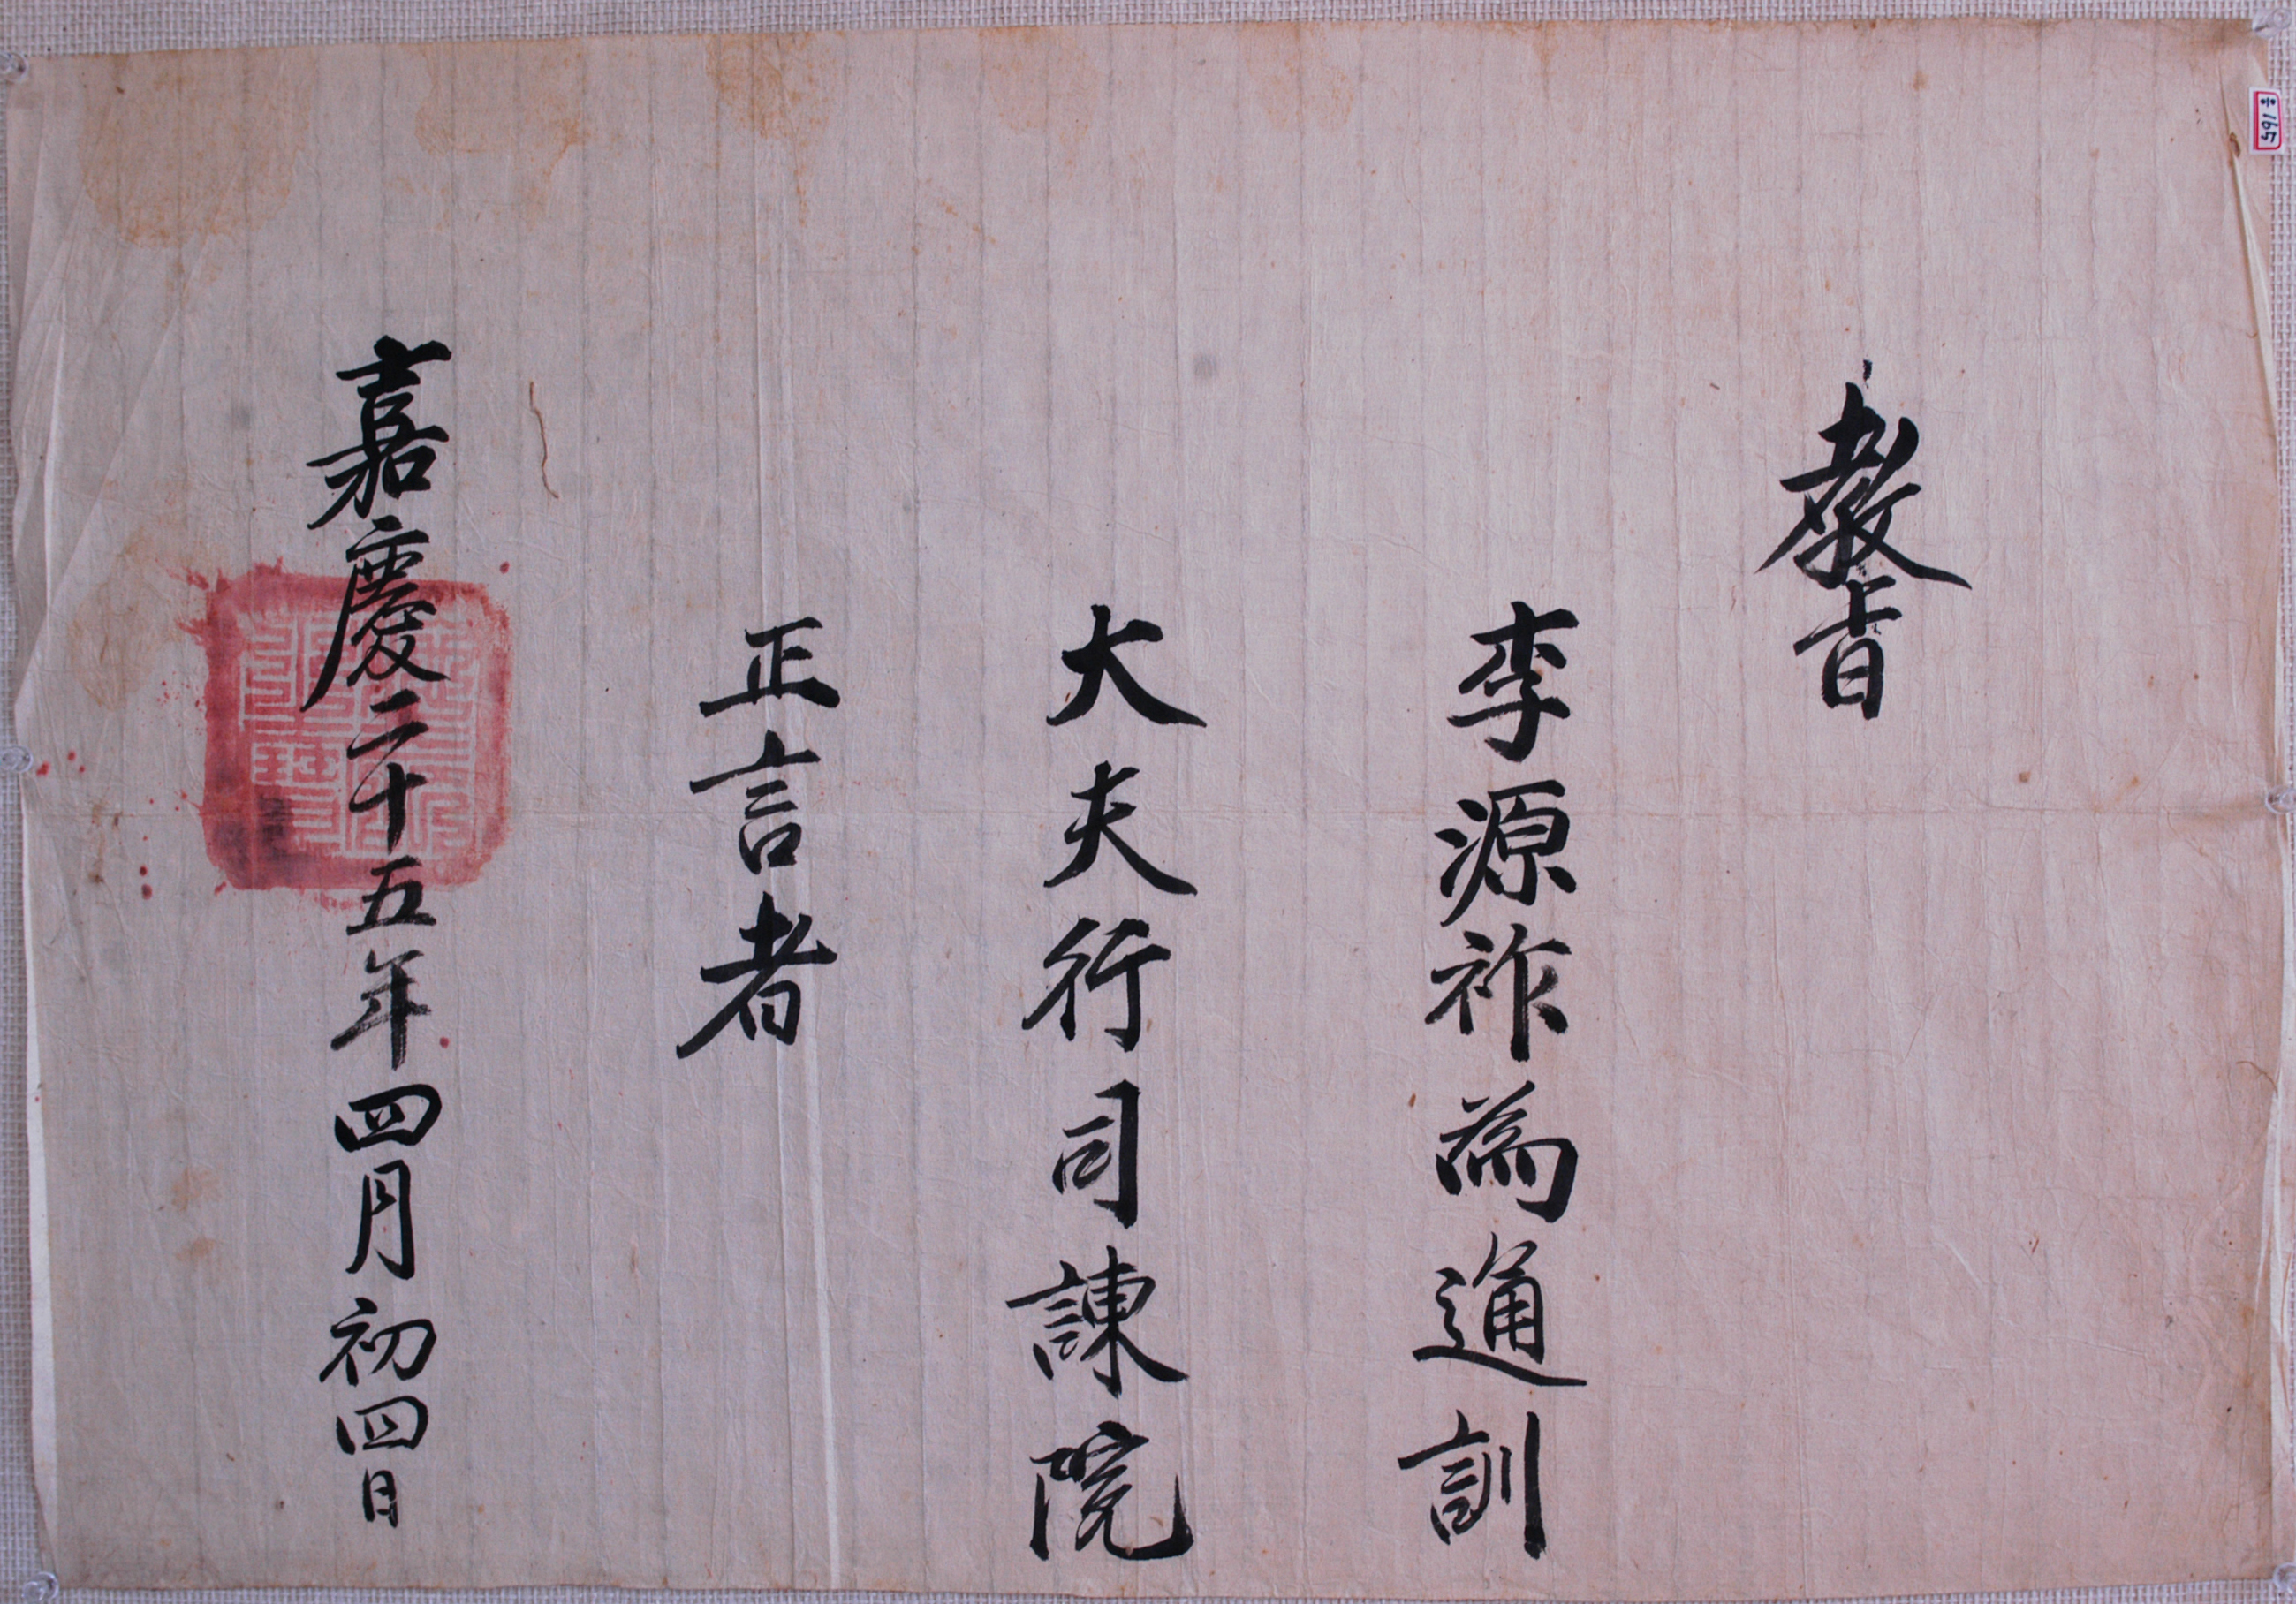 敎旨
李源祚為通訓
大夫行司諫院
正言者
嘉慶二十五年四月初四日
165